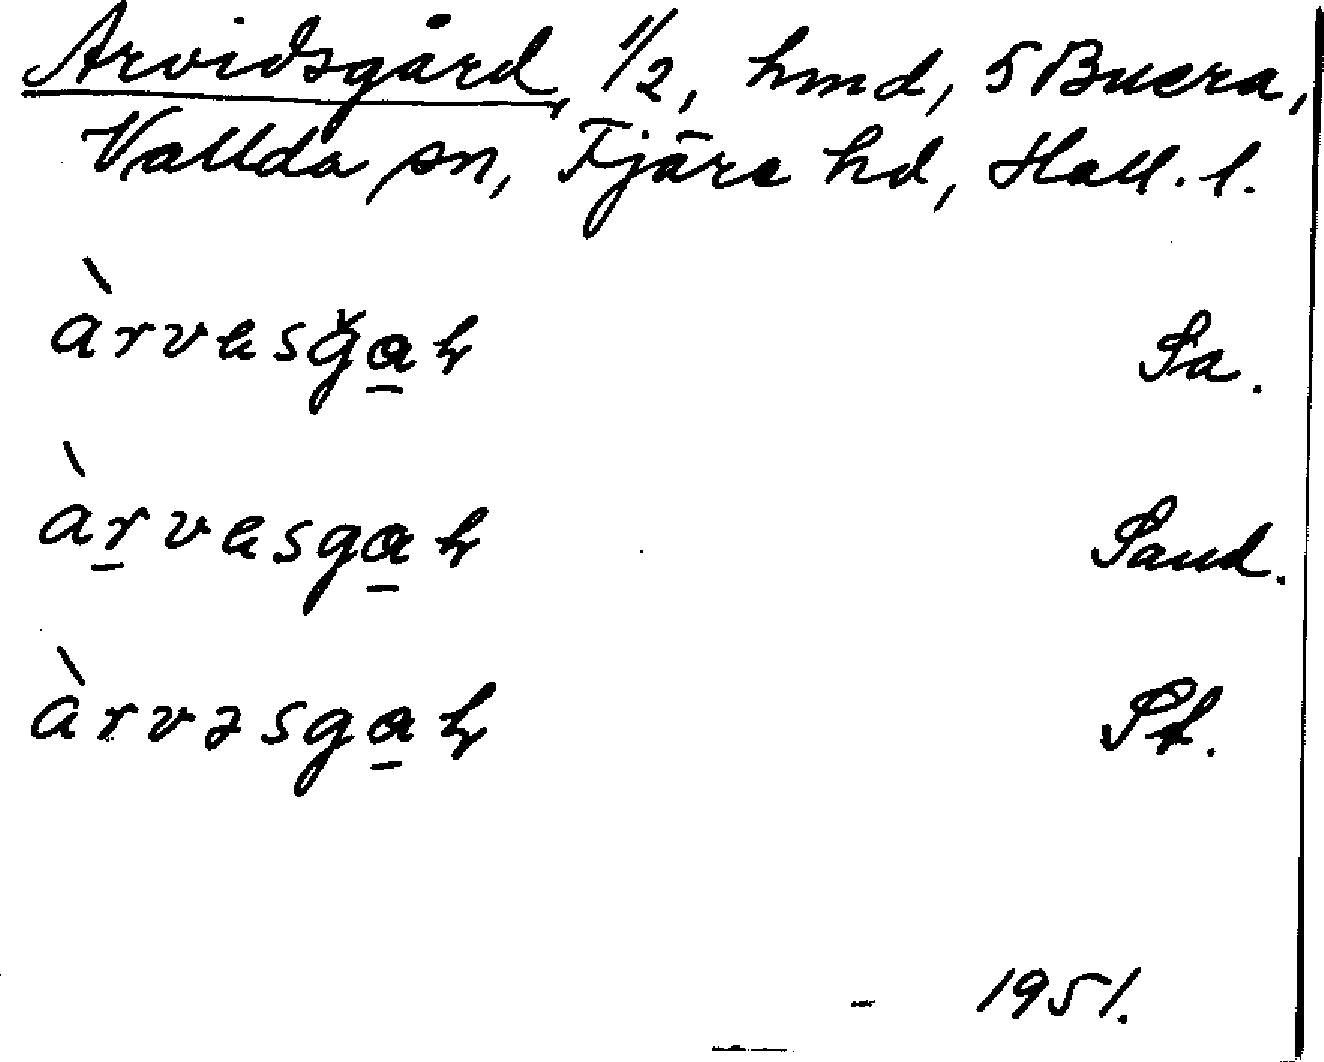 Arvidsgård, 1/2, hmd, 5 Buera,
Vallda sn, Fjäre hd, Hall. l.
àrvesgah Sa.
àrvesgah Sand.
àrvəsgah St.
- 1951.